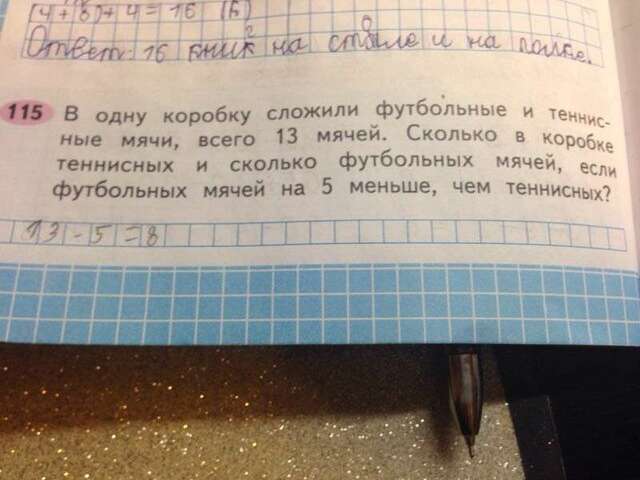 (4+8)+4=16 (к)
Ответ: 16 книг на столе и на полке.
115 В одну коробку сложили футбольные и теннис-
ные мячи, всего 13 мячей. Сколько в коробке
теннисных и сколько футбольных мячей, если
футбольных мячей на 5 меньше, чем теннисных?
13-5=8